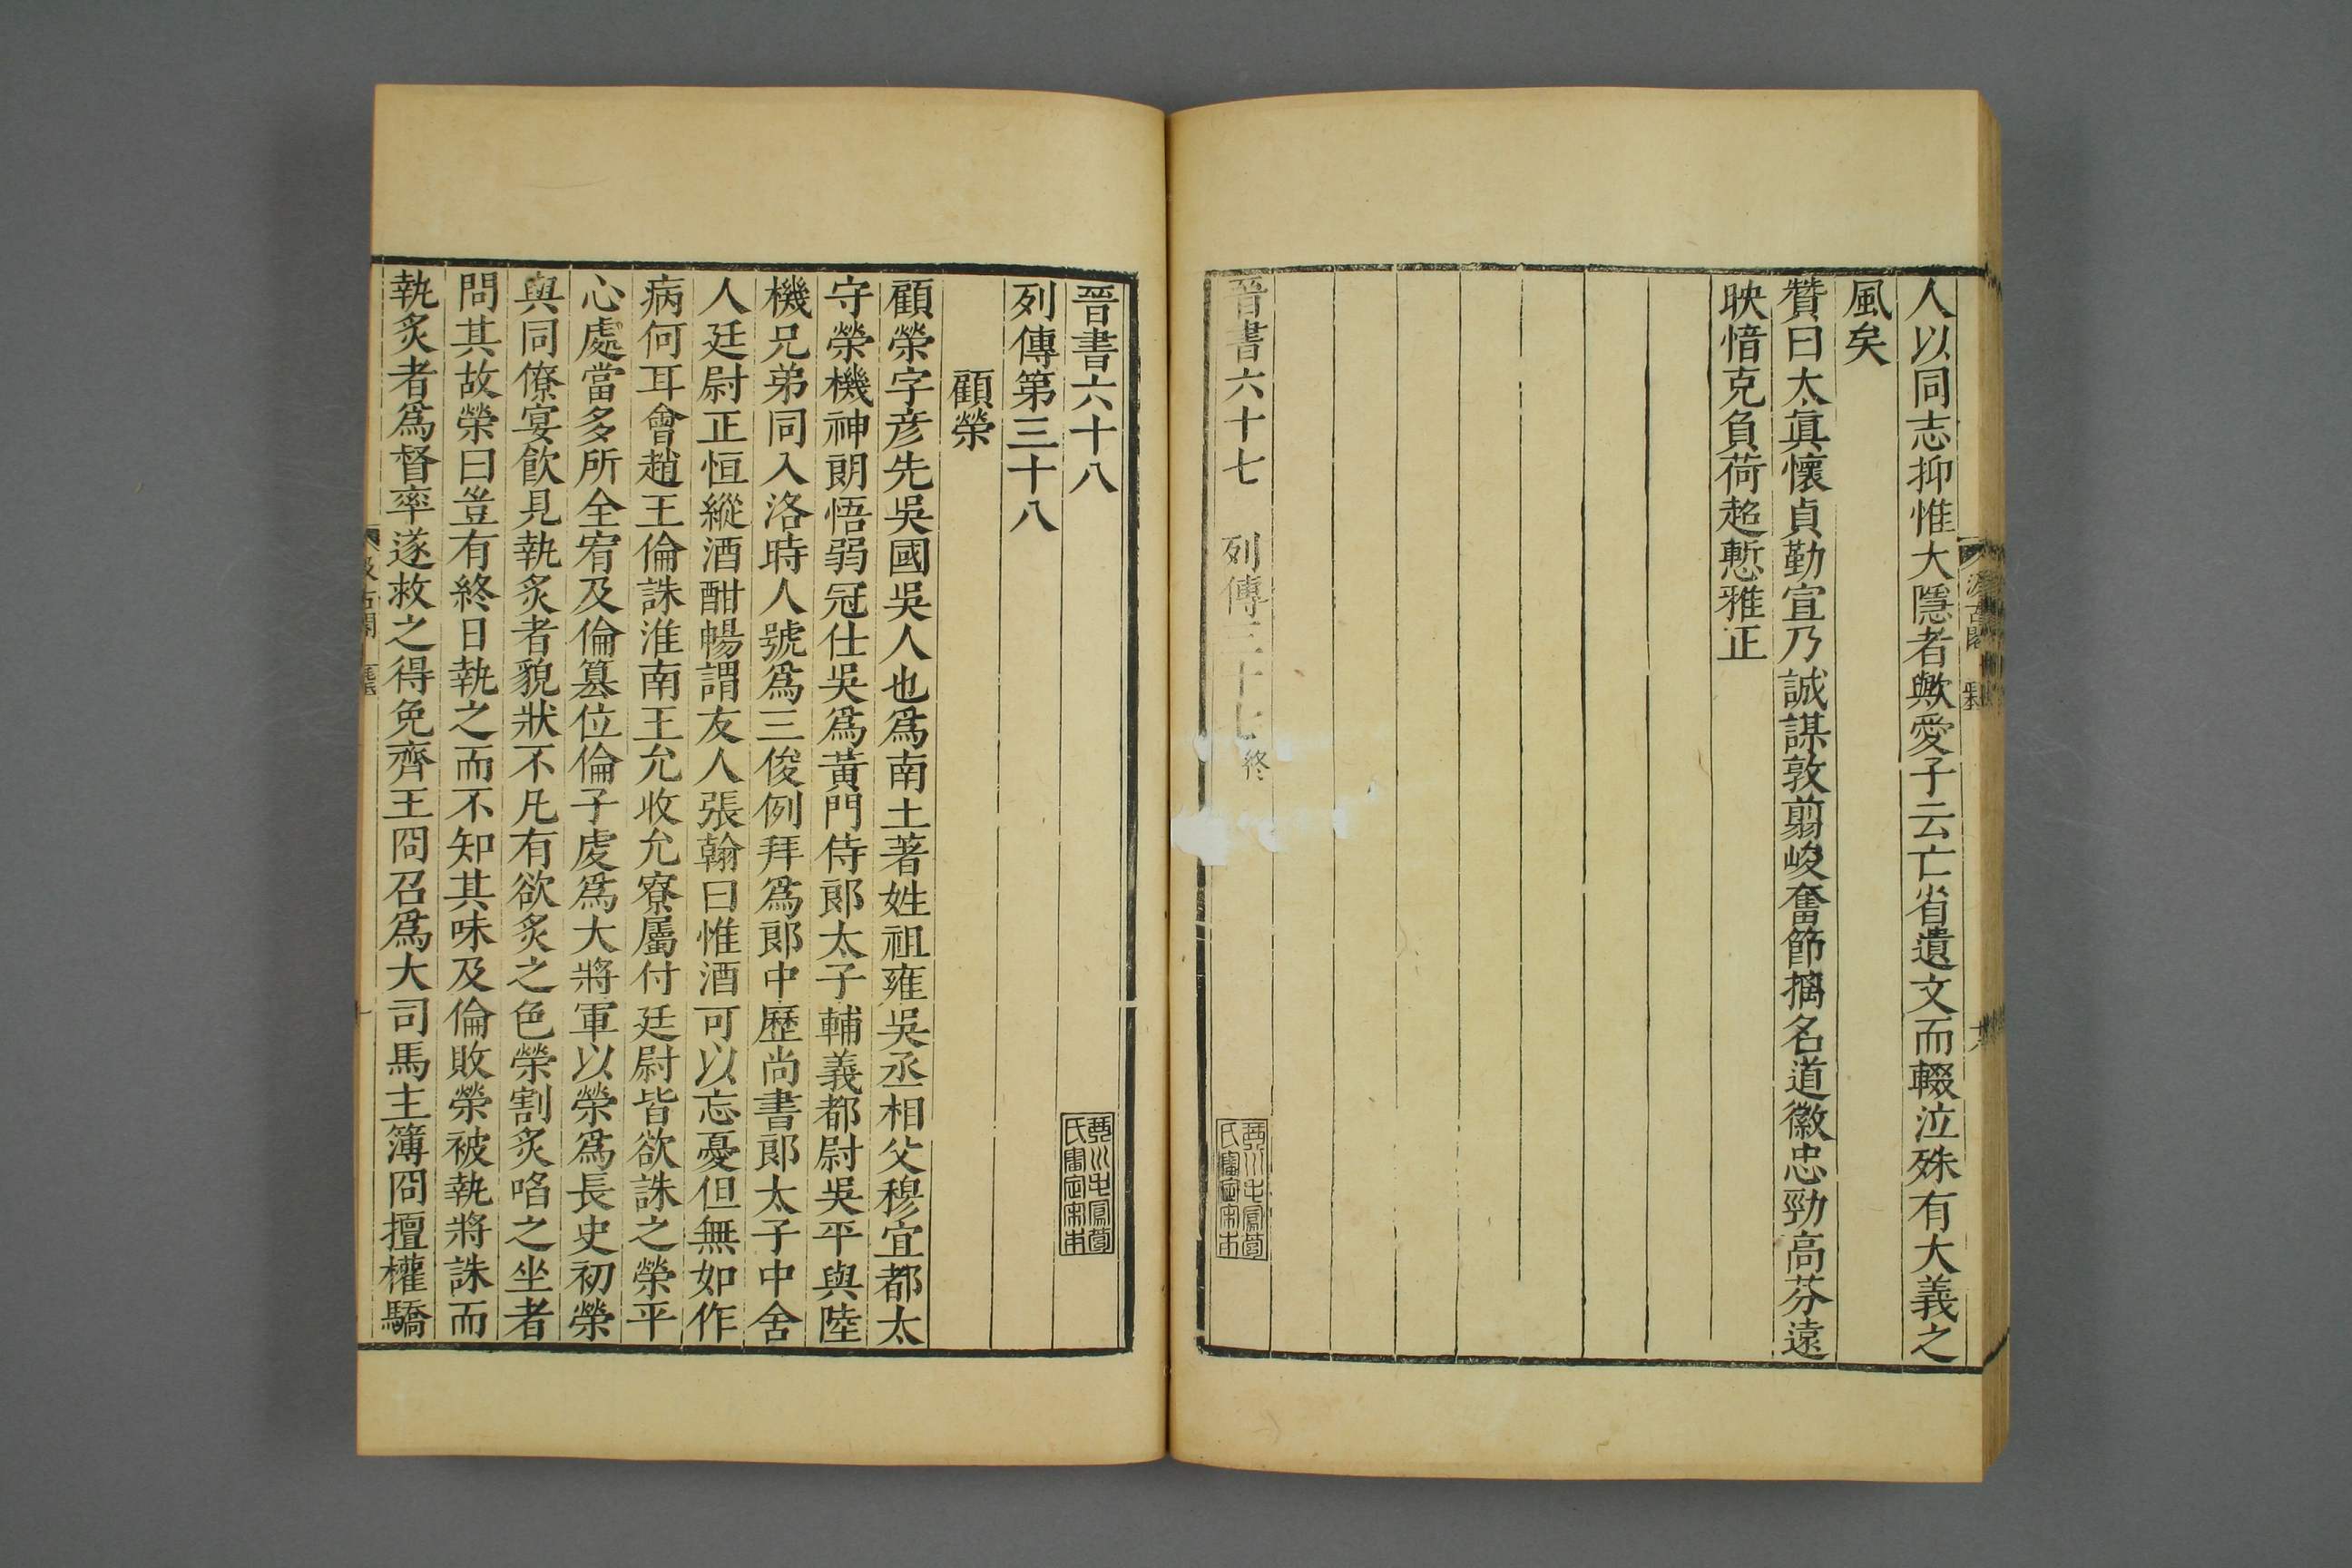 人以同志抑惟大隱者歟愛子云亡省遺文而輟泣殊有大義之
風矣
贊曰太眞懷貞勤宣乃誠謀敦翦峻奮節摛名道徽忠勁高芬遠
映愔克負荷超慙雅正
晉書六十七 列傳三十七終
晉書六十八
列傳第三十八
顧榮
顧榮字彥先吳國吳人也爲南土著姓祖雍吳丞相父穆宜都太
守榮機神朗悟弱冠仕吳爲黃門侍郎太子輔義都尉吳平與陸
機兄弟同入洛時人號爲三俊例拜爲郎中歷尚書郎太子中舍
人廷尉正恒縱酒酣暢謂友人張翰曰惟酒可以忘憂但無如作
病何耳會趙王倫誅淮南王允收允寮屬付廷尉皆欲誅之榮平
心處當多所全宥及倫篡位倫子虔爲大將軍以榮爲長史初榮
與同僚宴飮見執炙者貌狀不凡有欲炙之色榮割炙啗之坐者
問其故榮曰豈有終日執之而不知其味及倫敗榮被執將誅而
執炙者爲督率遂救之得免齊王冏召爲大司馬主簿冏擅權驕